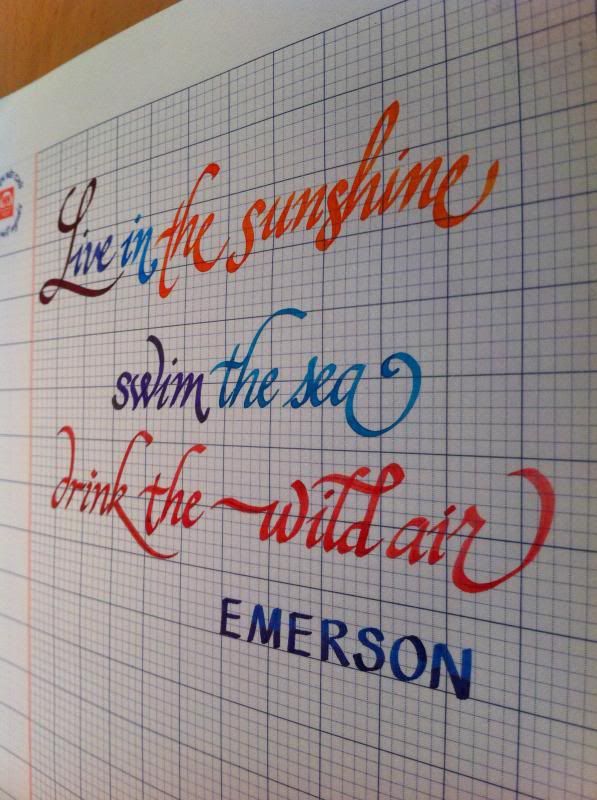 Live in the sunshine
swim the sea
drink the wild air
EMERSON